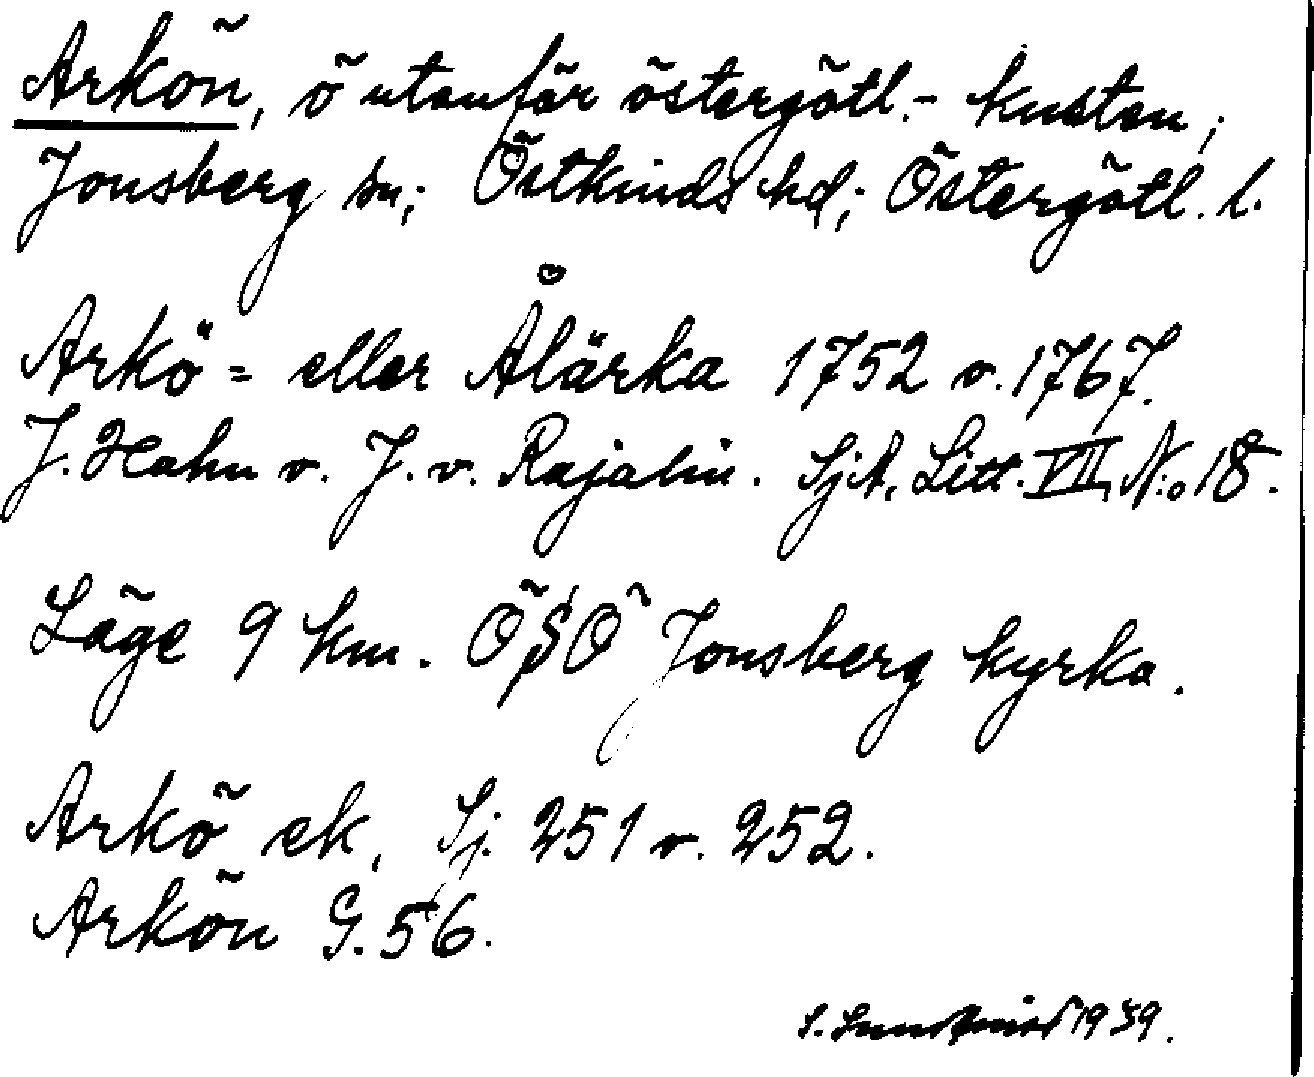 Arkön, ö utanför östergötl.- kusten;
Jonsberg sn; Östkinds hd; Östergötl. l.
Arkö= eller Ålärka 1752 o. 1767.
J. Hahn o. J. v. Rajalin. SjA, Litt. VII, N:o 18.
Läge 9 km. ÖSÖ Jonsberg kyrka.
Arkö ek, Sj. 251 o. 252.
Arkön G. 56.
S. 1939.